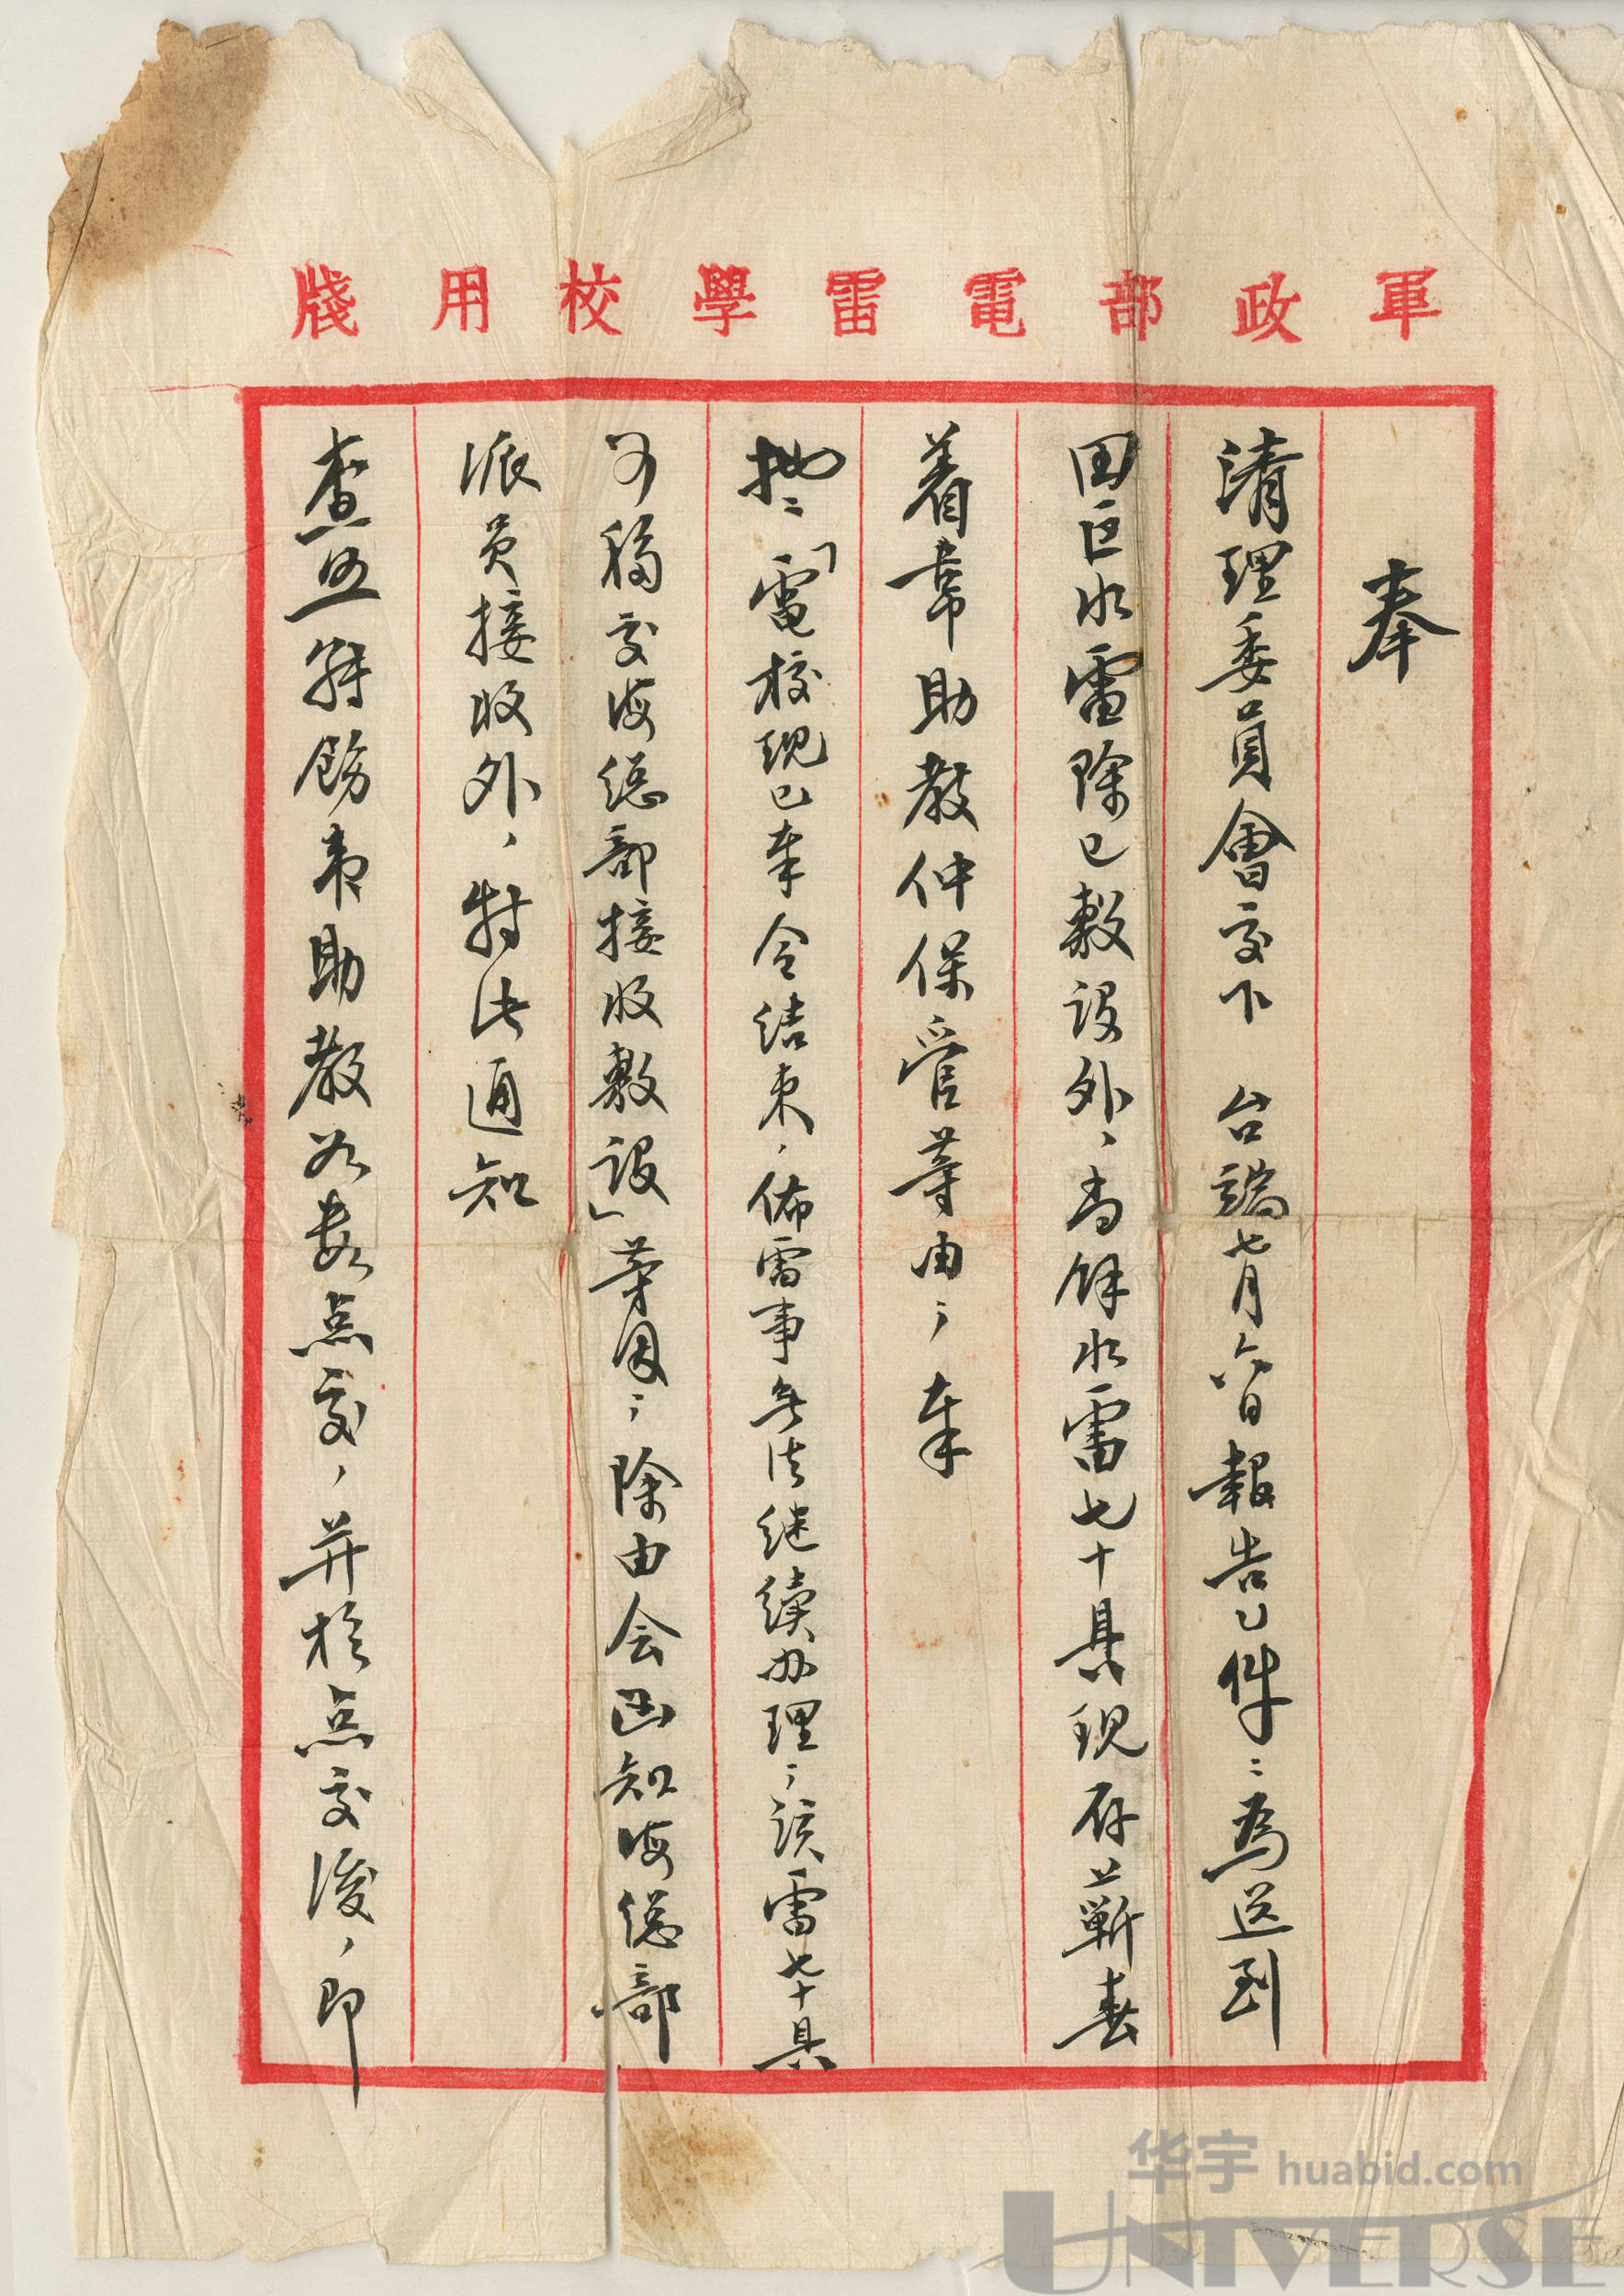 軍政部電雷學校用牋
奉
清理委員會交下 台端七月六日報告乙件：為送到
田巨水雷除已敷設外，尚餘水雷七十具現存蘄春
着韋助教仲保管等由；奉
批：「電校現已奉令結束，佈雷事無法继續办理；該雷七十具
可移交海总部接收敷設」等因；除由会函知海总部
派員接收外，特此通知
查照转飭韦助教如数点交，并於点交後，即
华宇 huabid.com
UNIVERSE